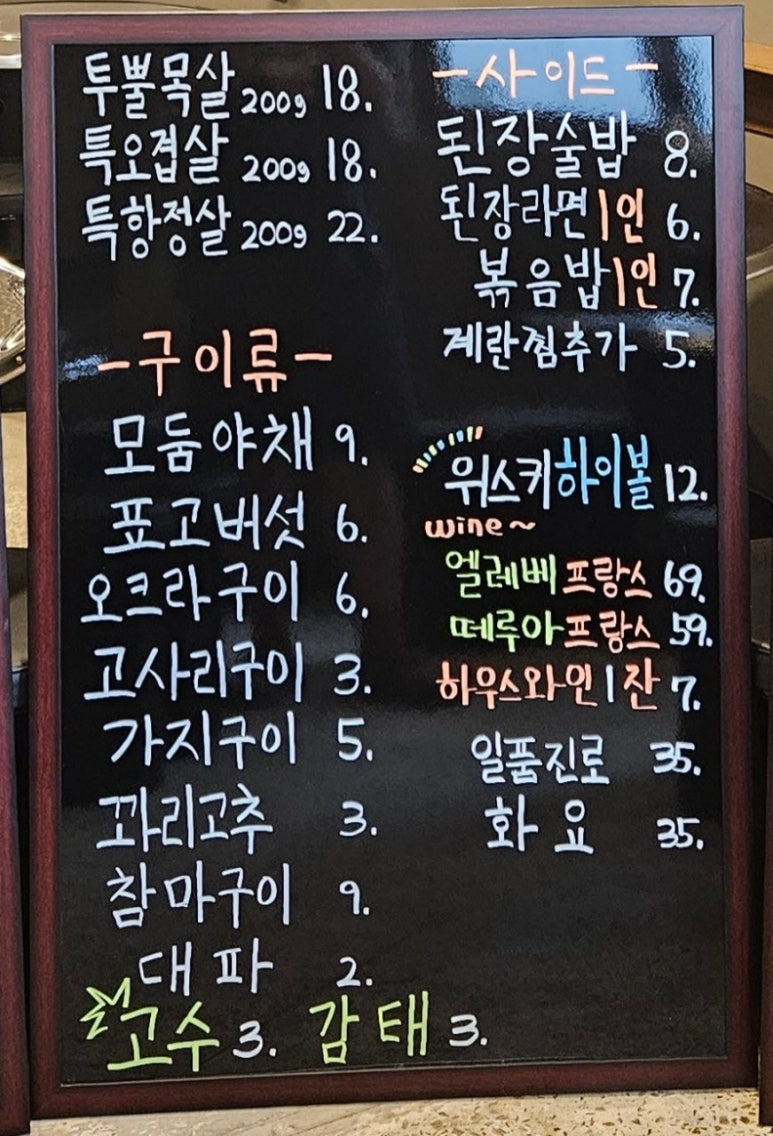 투뿔목살 200g 18.
특오겹살 200g 18.
특항정살 200g 22.
-구이류-
모둠야채 9.
표고버섯 6.
오크라구이 6.
고사리구이 3.
가지구이 5.
꽈리고추 3.
참마구이 9.
대파 2.
고수 3. 감태 3.
-사이드-
된장술밥 8.
된장라면 1인 6.
볶음밥 1인 7.
계란찜추가 5.
위스키하이볼 12.
wine~
엘레베 프랑스 69.
떼루아 프랑스 59.
하우스와인 1잔 7.
일품진로 35.
화요 35.